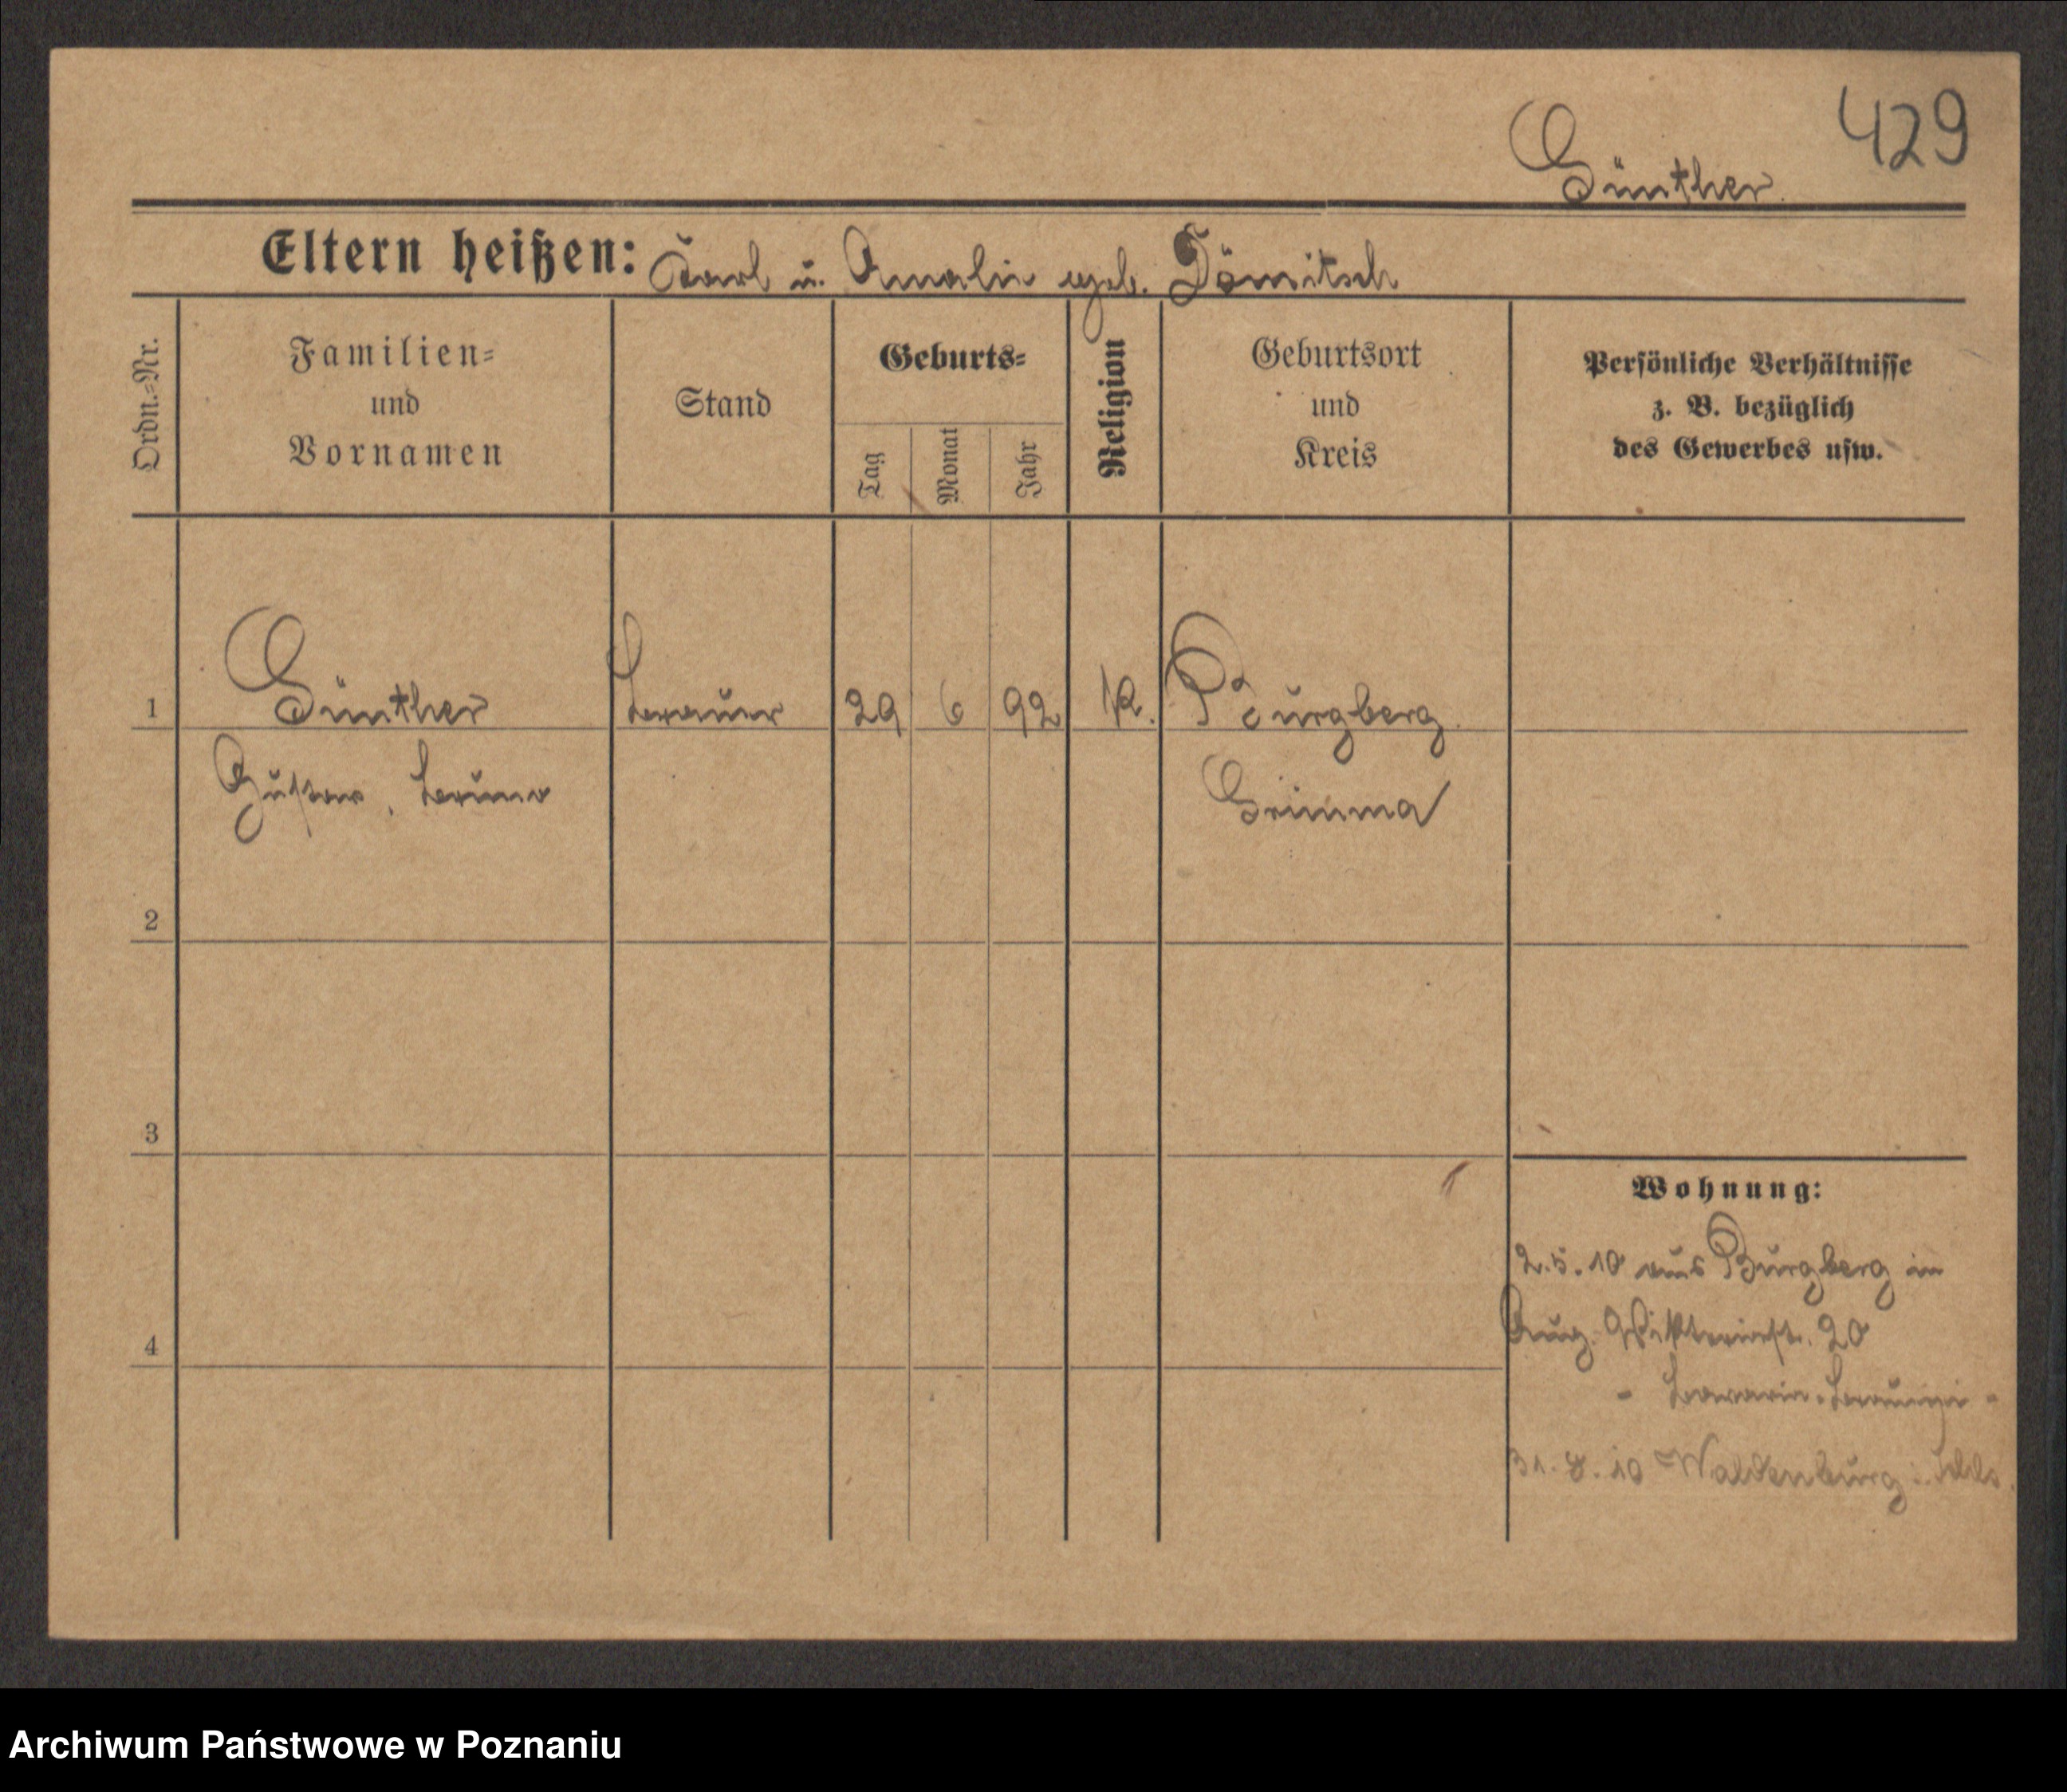 429
Günther.
Eltern heißen: Karl u. Amalie geb. Dömitsch
Ordn.-Nr.
Familien-
und
Vornamen
Stand
Geburts-
Tag
Monat
Jahr
Religion
Geburtsort
und
Kreis
Persönliche Verhältnisse
z. B. bezüglich
des Gewerbes usw.
1
Günther
Brauer
29
6
92
K.
Burgberg
Gustav, Bruno
Grimma
2
3
4
Wohnung:
2.5.10 aus Burgberg in
Aug. Viktoriastr. 20
- Bavaria-Brauerei -
31.8.10 Waldenburg i. Schls.
Archiwum Państwowe w Poznaniu